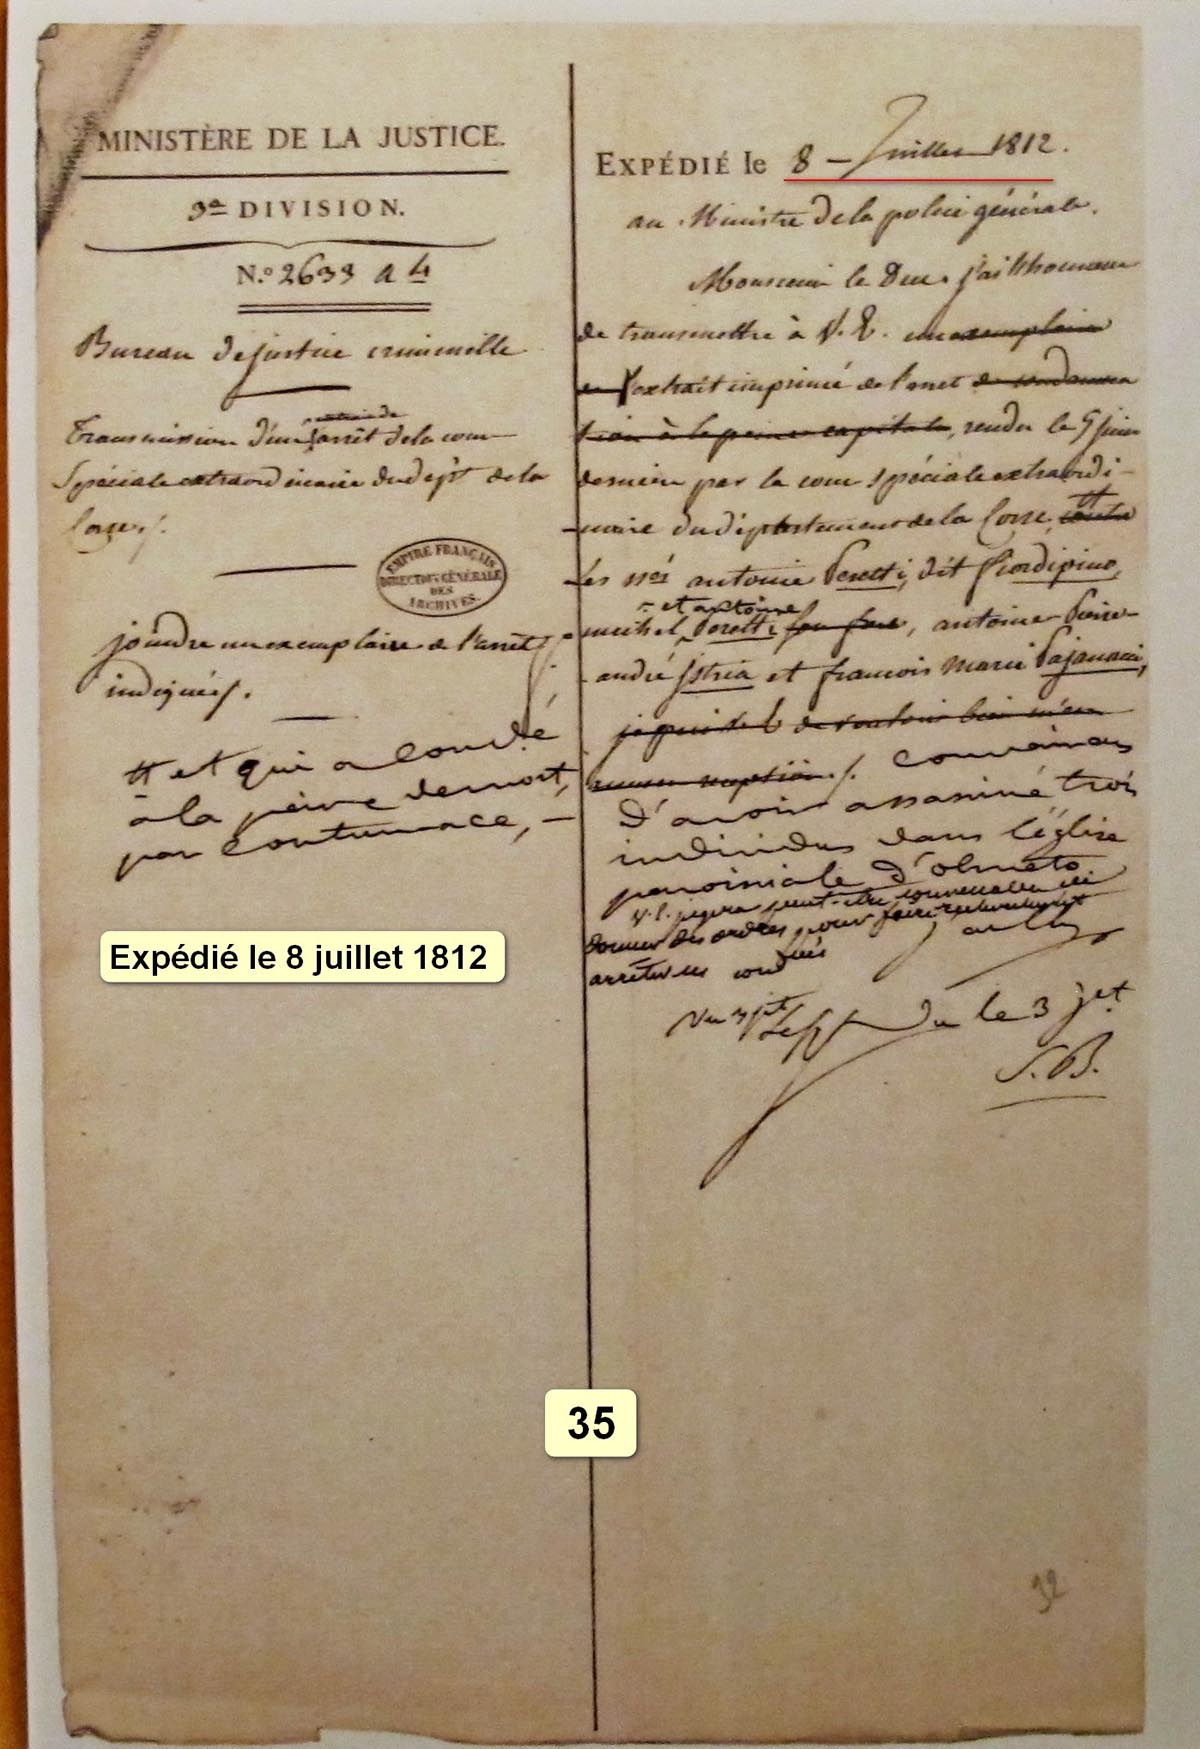 MINISTÈRE DE LA JUSTICE.
DIVISION.
N.º 2633 A 4
Bureau de justice criminelle
Transmission d'un extrait de
arrêt de la cour
spéciale extraordinaire du dépt de la
Corse /.
EMPIRE FRANÇAIS
DIRECTION GÉNÉRALE
DES
ARCHIVES.
joindre un exemplaire de l'arrêt
indiqué /.
tt et qui a condé
à la peine de mort,
par contumace, —
Expédié le 8 juillet 1812
EXPÉDIÉ le 8 – Juillet 1812.
au Ministre de la police générale.
Monsieur le Duc, j'ai l'honneur
de transmettre à V. E. un exemplaire
de l'extrait imprimé de l'arrêt de condamna
tion à la peine capitale, rendu le 9 juin
dernier par la cour spéciale extraordi-
naire du département de la Corse, tt contre
les srs antoine Peretti, dit fiordipino,
et antoine
michel Peretti, antoine Pierre
andré Istria et francois marie Pajanacci,
je prie V. E. de vouloir bien m'en
/. convaincus
d'avoir assassiné trois
individus dans l'église
paroissiale d'olmeto
V. E. jugera peut-être convenable de
donner des ordres pour faire rechercher et
arrêter les condnés
Vu 3 jet
du le 3 jet
S. B.
35
32